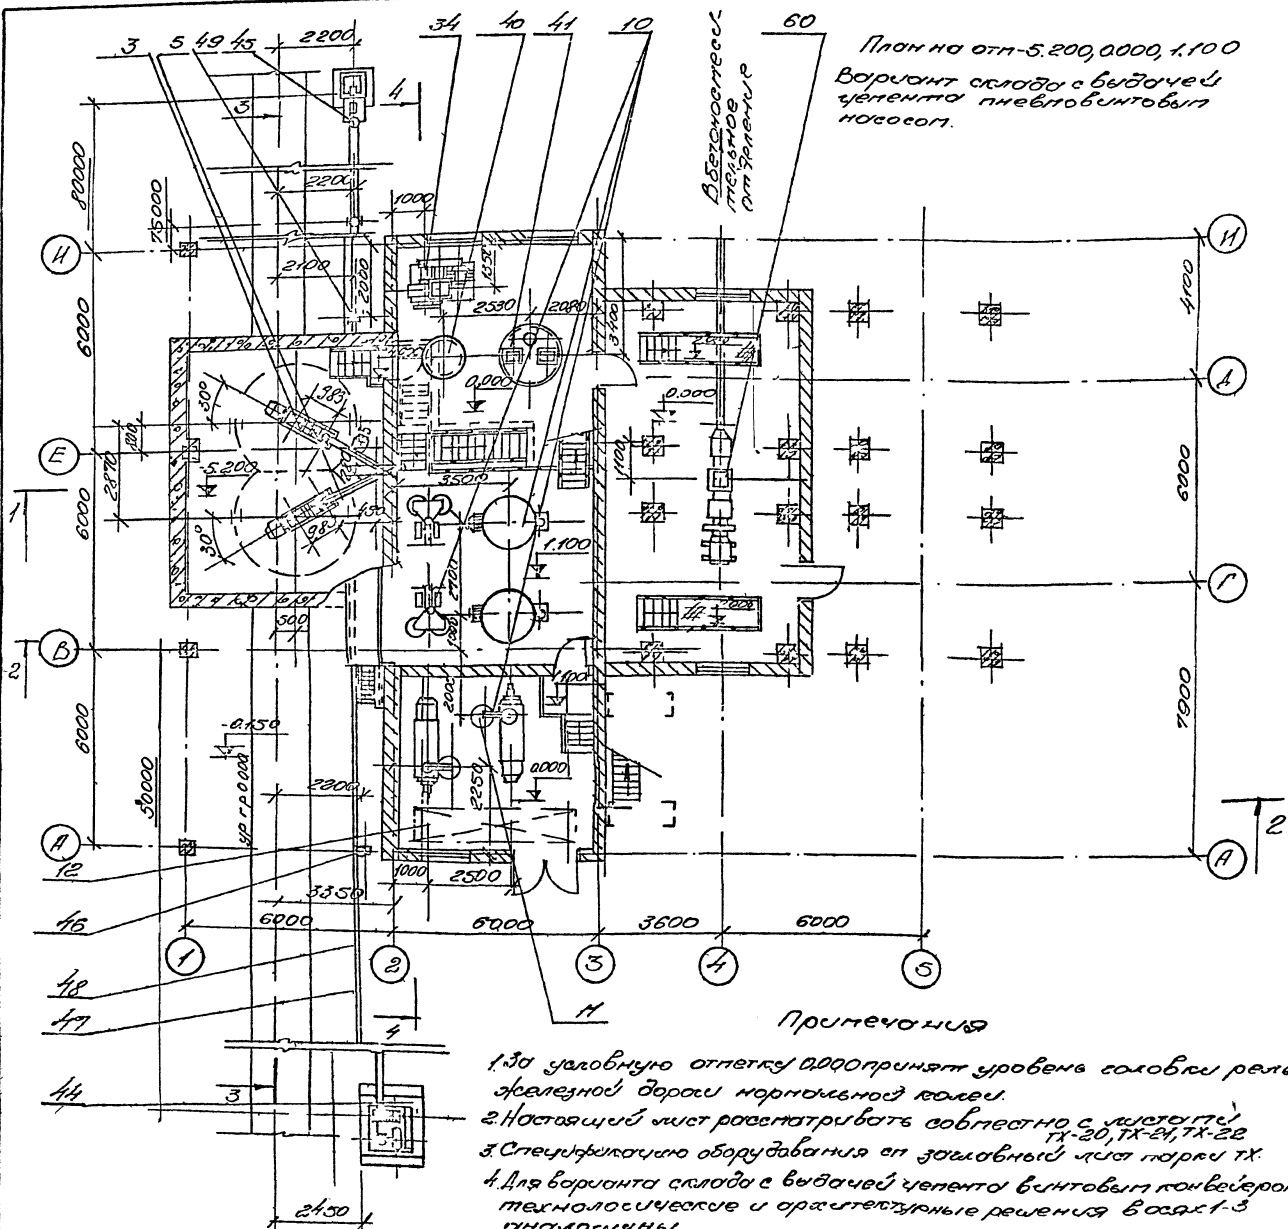 3 5 49 45 2200 34 40 41 10 60
План на отм-5.200, 0.000, 1.100
Вариант склада с выдачей
цемента пневмовинтовым
насосом.
В бетоносмеси-
тельное
отделение
3
4
80000
2200
1000
75000
И
И
2100
2000
1350
2530
2080
3400
4700
6000
0.000
Д
30°
985
0.000
Е
2870
-5.200
3500
1100
6000
1
450
985
30°
6000
1.100
2700
Г
500
1000
В
2
2000
1.100
-0.150
6000
7900
50000
2800
2250
0.000
2
А
А
12
1000
2500
3350
46
6000 6000 3600 6000
1 2 3 4 5
48
47
М
4
Примечания
1. За условную отметку 0.000 принят уровень головки рель
железной дороги нормальной колеи.
2. Настоящий лист рассматривать совместно с листами
ТХ-20, ТХ-21, ТХ-22
3. Спецификацию оборудования см заглавный лист марки ТХ.
4. Для варианта склада с выдачей цемента винтовым конвейером
технологические и архитектурные решения в осях 1-3
аналогичны
44
3
2450